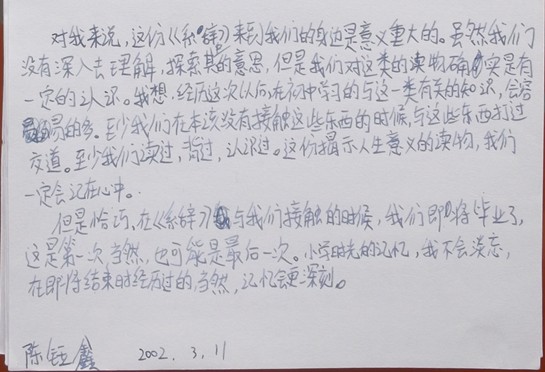 对我来说，这份《系辞》来到我们的身边是意义重大的。虽然我们
没有深入去理解，探索其的意思，但是我们对这类的读物确实是有
一定的认识。我想，经历这次以后，在初中学习的与这一类有关的知识，会容
易的多。至少我们在本该没有接触这些东西的时候，与这些东西打过
交道。至少我们读过，背过，认识过。这份揭示人生意义的读物，我们
一定会记在心中。
但是恰巧，在《系辞》与我们接触的时候，我们即将毕业了，
这是第一次，当然，也可能是最后一次。小学时光的记忆，我不会淡忘，
在即将结束时经历过的，当然，记忆会更深刻。
陈钰鑫 2002.3.11